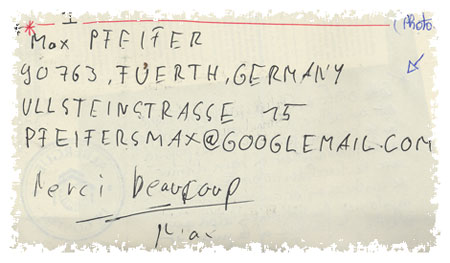 (Photo
Max PFEIFER
90763, FUERTH, GERMANY
ULLSTEINSTRASSE 15
PFEIFERSMAX@GOOGLEMAIL.COM
Merci beaucoup
Max